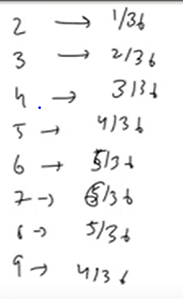 2 → 1/36
3 → 2/36
4 → 3/36
5 → 4/36
6 → 5/36
7 → 6/36
8 → 5/36
9 → 4/36